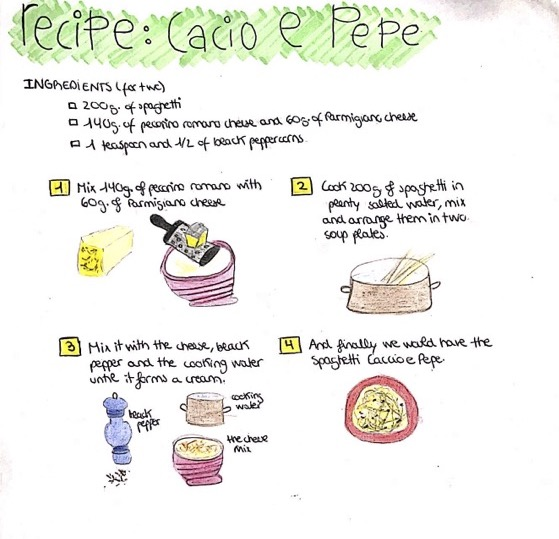 recipe: Cacio e Pepe
INGREDIENTS (for two)
200g. of spaghetti
140g. of pecorino romano cheese and 60g of Parmigiano cheese
1 teaspoon and 1/2 of beack peppercorns
1 Mix 140g. of pecorino romano with
60g. of Parmigiano cheese
2 Cook 200g of spaghetti in
plenty salted water, mix
and arrange them in two
soup plates.
3 Mix it with the cheese, beack
pepper and the cooking water
untie it forms a cream.
beack
pepper
cooking
water
the cheese
mix
4 And finally we would have the
Spaghetti Caccio e Pepe.